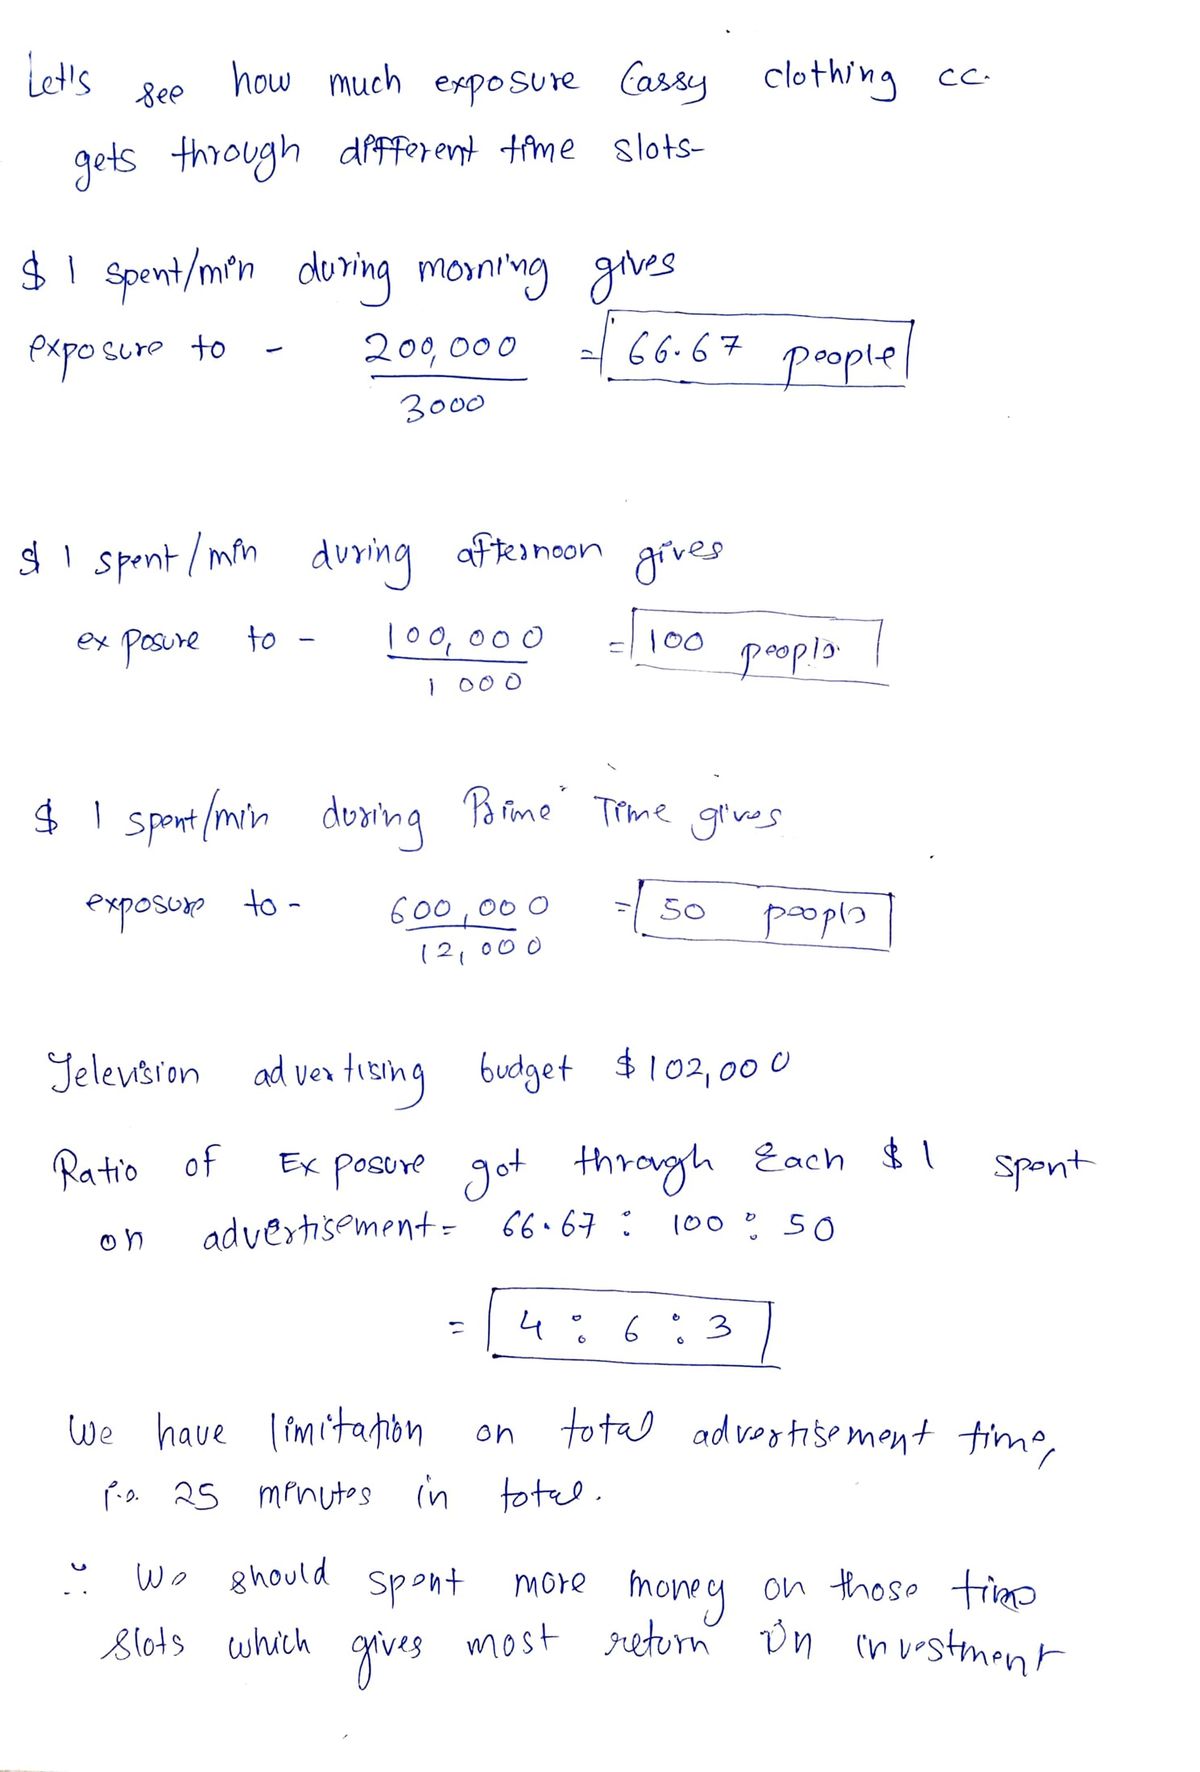 Let's see how much exposure Cassy clothing cc.
gets through different time slots-
$ 1 spent/min during morning gives
exposure to - 200,000 / 3000 = 66.67 people
$ 1 spent/min during afternoon gives
exposure to - 100,000 / 1000 = 100 people
$ 1 spent/min during Prime Time gives
exposure to - 600,000 / 12,000 = 50 people
Television advertising budget $102,000
Ratio of Exposure got through Each $1 spent
on advertisement = 66.67 : 100 : 50
= 4 : 6 : 3
We have limitation on total advertisement time,
i.e. 25 minutes in total.
∴ We should spent more money on those time
slots which gives most return on investment